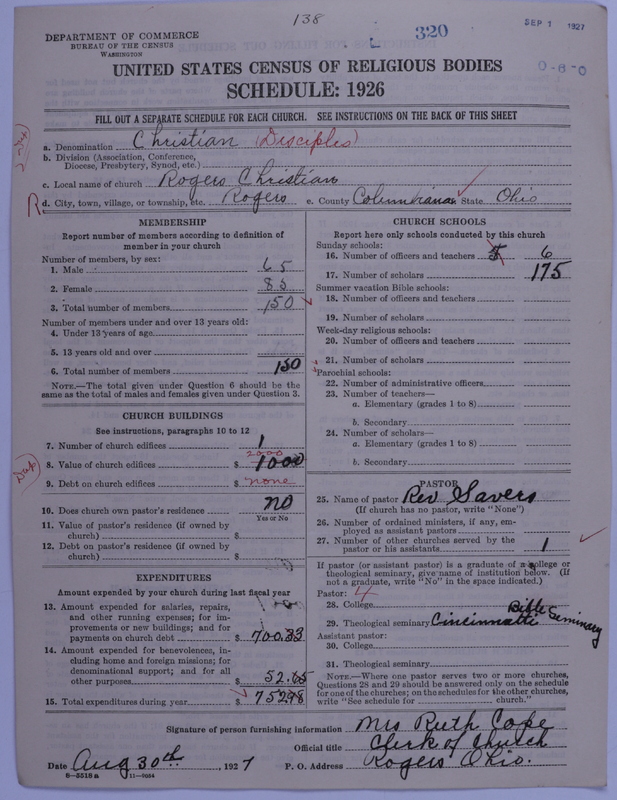 138
320
SEP 1 1927
0-8-0
DEPARTMENT OF COMMERCE
BUREAU OF THE CENSUS
WASHINGTON
UNITED STATES CENSUS OF RELIGIOUS BODIES
SCHEDULE: 1926
FILL OUT A SEPARATE SCHEDULE FOR EACH CHURCH. SEE INSTRUCTIONS ON THE BACK OF THIS SHEET
a. Denomination Christian (Disciples)
b. Division (Association, Conference,
Diocese, Presbytery, Synod, etc.)
c. Local name of church Rogers Christian
R d. City, town, village, or township, etc. Rogers e. County Columbiana State Ohio
MEMBERSHIP
Report number of members according to definition of
member in your church
Number of members, by sex:
1. Male 65
2. Female 85
3. Total number of members 150
Number of members under and over 13 years old:
4. Under 13 years of age
5. 13 years old and over
6. Total number of members 150
NOTE.—The total given under Question 6 should be the
same as the total of males and females given under Question 3.
CHURCH BUILDINGS
See instructions, paragraphs 10 to 12
7. Number of church edifices 1
2000
8. Value of church edifices $ 1000
9. Debt on church edifices $ none
10. Does church own pastor's residence no
Yes or No
11. Value of pastor's residence (if owned by
church) $
12. Debt on pastor's residence (if owned by
church) $
EXPENDITURES
Amount expended by your church during last fiscal year
13. Amount expended for salaries, repairs,
and other running expenses; for im-
provements or new buildings; and for
payments on church debt $ 700.33
14. Amount expended for benevolences, in-
cluding home and foreign missions; for
denominational support; and for all
other purposes $ 52.65
15. Total expenditures during year $ 752.98
CHURCH SCHOOLS
Report here only schools conducted by this church
Sunday schools:
16. Number of officers and teachers 6
17. Number of scholars 175
Summer vacation Bible schools:
18. Number of officers and teachers
19. Number of scholars
Week-day religious schools:
20. Number of officers and teachers
21. Number of scholars
Parochial schools:
22. Number of administrative officers
23. Number of teachers—
a. Elementary (grades 1 to 8)
b. Secondary
24. Number of scholars—
a. Elementary (grades 1 to 8)
b. Secondary
PASTOR
25. Name of pastor Rev Savers
(If church has no pastor, write "None")
26. Number of ordained ministers, if any, em-
ployed as assistant pastors
27. Number of other churches served by the
pastor or his assistants 1
If pastor (or assistant pastor) is a graduate of a college or
theological seminary, give name of institution below. (If
not a graduate, write "No" in the space indicated.)
Pastor: 4
28. College
29. Theological seminary Cincinnatti Bible Seminary
Assistant pastor:
30. College
31. Theological seminary
NOTE.—Where one pastor serves two or more churches,
Questions 28 and 29 should be answered only on the schedule
for one of the churches; on the schedules for the other churches,
write "See schedule for church."
Signature of person furnishing information Mrs Ruth Cope
Official title Clerk of Church
Date Aug 30th, 1927 P. O. Address Rogers Ohio.
8-5518a 11-9054